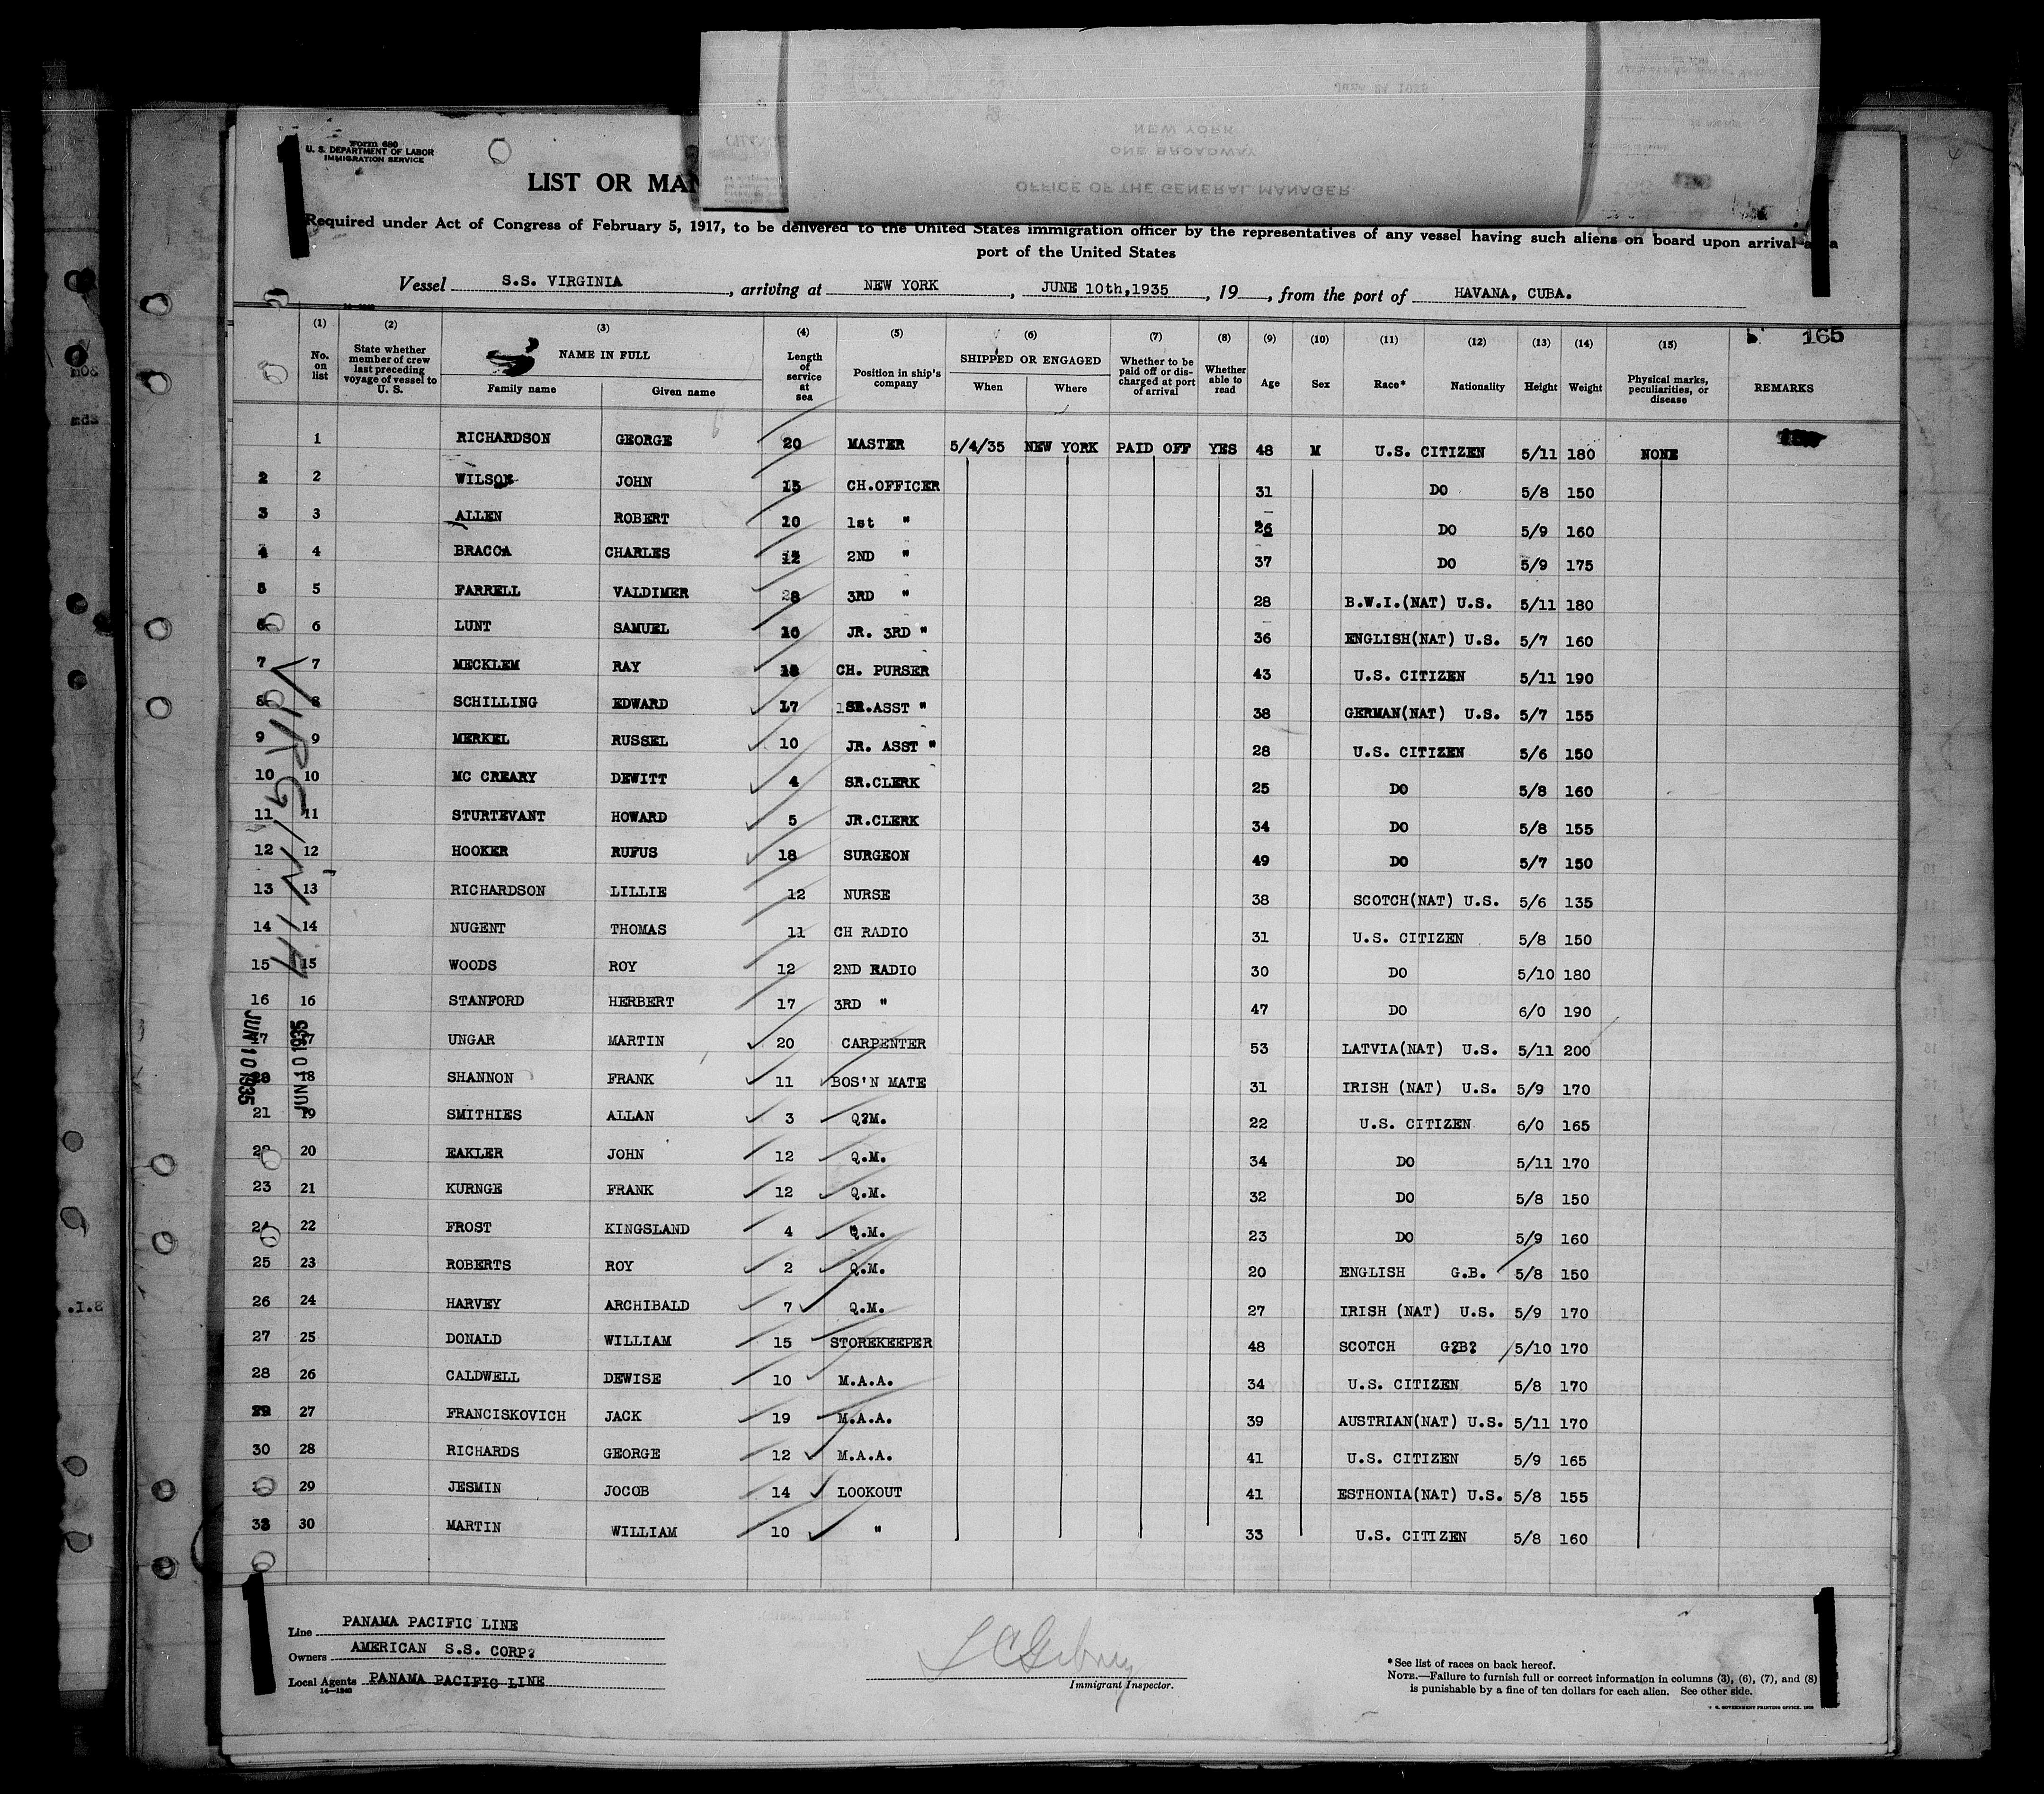 Form 680
U. S. DEPARTMENT OF LABOR
IMMIGRATION SERVICE
June 1935
NEW YORK
ONE BROADWAY
OFFICE OF THE GENERAL MANAGER
LIST OR MAN
Required under Act of Congress of February 5, 1917, to be delivered to the United States immigration officer by the representatives of any vessel having such aliens on board upon arrival at a
port of the United States
Vessel S.S. VIRGINIA, arriving at NEW YORK, JUNE 10th,1935, 19, from the port of HAVANA, CUBA.
165
(1) (2) (3) (4) (5) (6) (7) (8) (9) (10) (11) (12) (13) (14) (15)
No. on list
State whether member of crew last preceding voyage of vessel to U. S.
NAME IN FULL
Family name Given name
Length of service at sea
Position in ship's company
SHIPPED OR ENGAGED
When Where
Whether to be paid off or discharged at port of arrival
Whether able to read
Age Sex Race* Nationality Height Weight
Physical marks, peculiarities, or disease
REMARKS
1 RICHARDSON GEORGE 20 MASTER 5/4/35 NEW YORK PAID OFF YES 48 M U.S. CITIZEN 5/11 180 NONE
2 2 WILSON JOHN 15 CH.OFFICER 31 DO 5/8 150
3 3 ALLEN ROBERT 10 1st " 26 DO 5/9 160
4 4 BRACCA CHARLES 12 2ND " 37 DO 5/9 175
5 5 FARRELL VALDIMER 3RD " 28 B.W.I.(NAT) U.S. 5/11 180
6 6 LUNT SAMUEL JR. 3RD " 36 ENGLISH(NAT) U.S. 5/7 160
7 7 MECKLEM RAY CH. PURSER 43 U.S. CITIZEN 5/11 190
8 8 SCHILLING EDWARD 17 ASST " 38 GERMAN(NAT) U.S. 5/7 155
9 9 MERKEL RUSSEL 10 JR. ASST " 28 U.S. CITIZEN 5/6 150
10 10 MC CREARY DEWITT 4 SR.CLERK 25 DO 5/8 160
11 11 STURTEVANT HOWARD 5 JR.CLERK 34 DO 5/8 155
12 12 HOOKER RUFUS 18 SURGEON 49 DO 5/7 150
13 13 RICHARDSON LILLIE 12 NURSE 38 SCOTCH(NAT) U.S. 5/6 135
14 14 NUGENT THOMAS 11 CH RADIO 31 U.S. CITIZEN 5/8 150
15 15 WOODS ROY 12 2ND RADIO 30 DO 5/10 180
16 16 STANFORD HERBERT 17 3RD " 47 DO 6/0 190
17 17 UNGAR MARTIN 20 CARPENTER 53 LATVIA(NAT) U.S. 5/11 200
20 18 SHANNON FRANK 11 BOS'N MATE 31 IRISH (NAT) U.S. 5/9 170
21 19 SMITHIES ALLAN 3 Q?M. 22 U.S. CITIZEN 6/0 165
22 20 EAKLER JOHN 12 Q.M. 34 DO 5/11 170
23 21 KURNGE FRANK 12 Q.M. 32 DO 5/8 150
24 22 FROST KINGSLAND 4 Q.M. 23 DO 5/9 160
25 23 ROBERTS ROY 2 Q.M. 20 ENGLISH G.B. 5/8 150
26 24 HARVEY ARCHIBALD 7 Q.M. 27 IRISH (NAT) U.S. 5/9 170
27 25 DONALD WILLIAM 15 STOREKEEPER 48 SCOTCH G?B? 5/10 170
28 26 CALDWELL DEWISE 10 M.A.A. 34 U.S. CITIZEN 5/8 170
29 27 FRANCISKOVICH JACK 19 M.A.A. 39 AUSTRIAN(NAT) U.S. 5/11 170
30 28 RICHARDS GEORGE 12 M.A.A. 41 U.S. CITIZEN 5/9 165
29 JESMIN JOCOB 14 LOOKOUT 41 ESTHONIA(NAT) U.S. 5/8 155
33 30 MARTIN WILLIAM 10 " 33 U.S. CITIZEN 5/8 160
VIRGINIA
JUN 10 1935
JUN 10 1935
Line PANAMA PACIFIC LINE
Owners AMERICAN S.S. CORP?
Local Agents PANAMA PACIFIC LINE
14—1240
Immigrant Inspector.
*See list of races on back hereof.
NOTE.—Failure to furnish full or correct information in columns (3), (6), (7), and (8)
is punishable by a fine of ten dollars for each alien. See other side.
U. S. GOVERNMENT PRINTING OFFICE